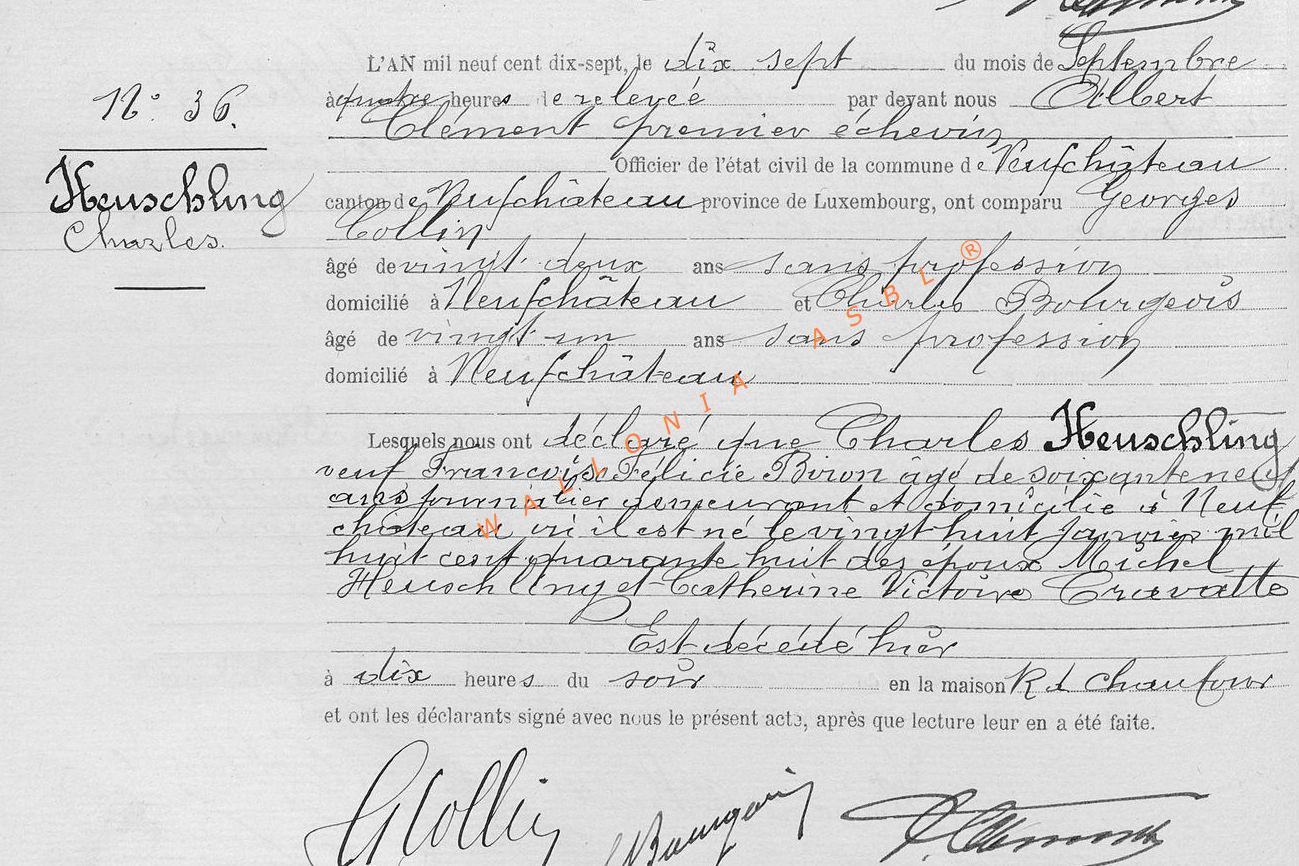 N° 36.
Heuschling
Charles.
L'AN mil neuf cent dix-sept, le dix sept du mois de Septembre
à quatre heures de relevée par devant nous Albert
Clément premier échevin
Officier de l'état civil de la commune de Neufchâteau
canton de Neufchâteau province de Luxembourg, ont comparu Georges
Collin
âgé de vingt deux ans sans profession
domicilié à Neufchâteau et Charles Bourgeois
âgé de vingt un ans sans profession
domicilié à Neufchâteau
Lesquels nous ont déclaré que Charles Heuschling
veuf Françoise Félicie Biron âgé de soixante neuf
ans journalier demeurant et domicilié à Neuf
château où il est né le vingt huit Janvier mil
huit cent quarante huit des époux Michel
Heuschling et Catherine Victoire Cravatte
Est décédé hier
à dix heures du soir en la maison R d Chaufour
et ont les déclarants signé avec nous le présent acte, après que lecture leur en a été faite.
G Collin
WALLONIA ASBL ®